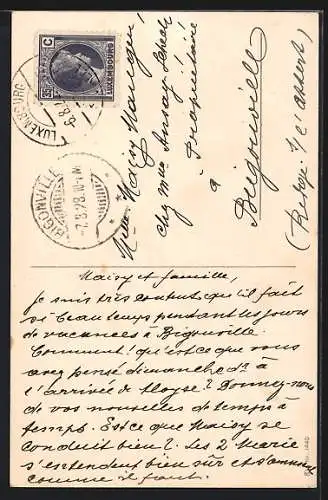 35 C
LUXEMBOURG
LUXEMBOURG
6.8.2
BIGONVILLE
-7.8.28.10-
Mlle Maisy
chez Mme
Propriétaire
à
Bigonville
Maisy et famille,
Je suis très content, qu'il fait
si beau temps pendant les jours
de vacances à Bigonville.
Comment! qu'est ce que vous
avez pensé dimanche à
l'arrivée de ? Donnez-nous
de vos nouvelles de temps à
temps. Est ce que Maisy se
conduit bien? Les 2 Marie
s'entendent bien sûr et s'amusent
comme il faut.